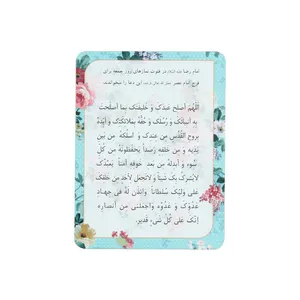 امام رضا علیه السلام در قنوت نمازهای روز جمعه برای
فرج امام عصر این دعا را میخواندند
اَللّهُمَّ اَصلِح عَبدَکَ وَ خَلیفَتَکَ بِما اَصلَحتَ
بِه اَنبیائَکَ وَ رُسُلَکَ وَ حُفَّهُ بِمَلائِکَتِکَ وَ اَیِّدهُ
بِروحِ القُدُسِ مِن عِندِکَ وَ اسلُکهُ مِن بَینِ
یَدَیهِ وَ مِن خَلفِهِ رَصَداً یَحفَظونَهُ مِن کُلِّ
سُوءٍ وَ اَبدِلهُ مِن بَعدِ خَوفِهِ اَمناً یَعبُدُکَ
لایُشرِکُ بِکَ شَیئاً وَ لاتَجعَل لِاَحَدٍ مِن خَلقِکَ
عَلی وَلیِّکَ سُلطاناً وَ ائذَن لَهُ فی جِهادِ
عَدُوِّکَ وَ عَدُوِّهِ وَ اجعَلنی مِن اَنصارِهِ
اِنَّکَ عَلی کُلِّ شَیءٍ قَدیرٌ.